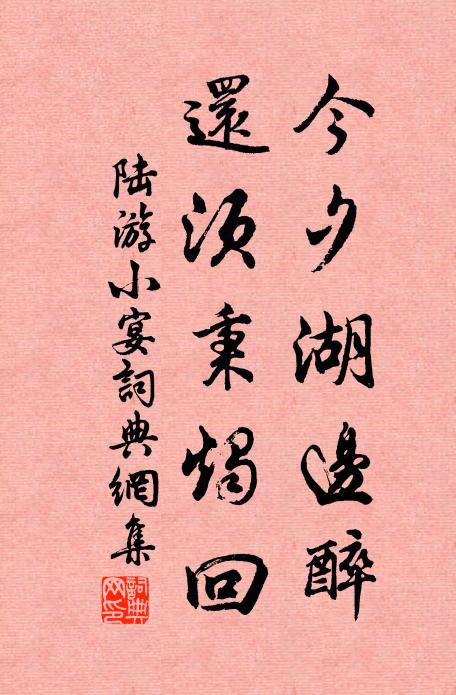 今夕湖邊醉
還須秉燭回
陆游小宴詞典網集
詞典網印